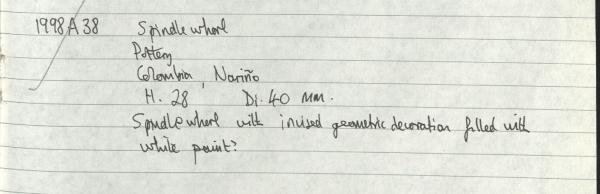 1998 A 38 Spindle whorl
Pottery
Colombia, Nariño
H. 28 Di. 40 mm.
Spindle whorl with incised geometric decoration filled with
white paint?